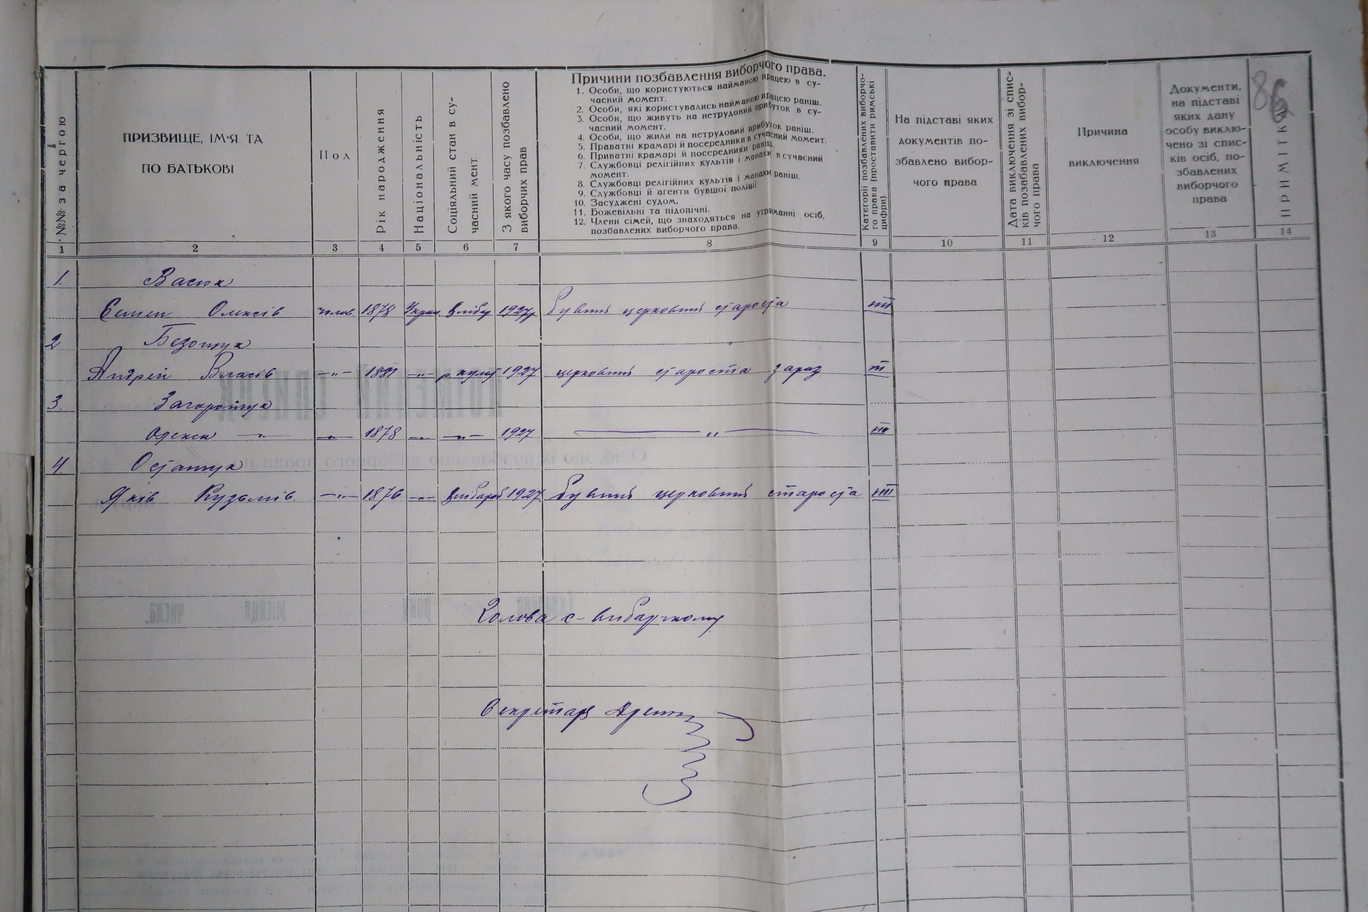 86
№№ за чергою
ПРИЗВИЩЕ, ІМ'Я ТА
ПО БАТЬКОВІ
Пол
Рік народження
Національність
Соціяльний стан в су-
часний мент
З якого часу позбавлено
виборчих прав
Причини позбавлення виборчого права.
1. Особи, що користуються найманою працею в су-
часний момент.
2. Особи, які користувались найманою працею раніш.
3. Особи, що живуть на нетрудовий прибуток в су-
часний момент.
4. Особи, що жили на нетрудовий прибуток раніш.
5. Праватні крамарі й посередники в сучасний момент.
6. Приватні крамарі й посередники раніш.
7. Службовці релігійних культів і манахи в сучасний
момент.
8. Службовці релігійних культів і манахи раніш.
9. Службовці й агенти бувшої поліції
10. Засуджені судом.
11. Божевільні та підопічні.
12. Члени сімей, що знаходяться на утриманні осіб,
позбавлених виборчого права.
Категорії позбавлених виборчо-
го права (проставити римські
цифри).
На підставі яких
документів по-
збавлено вибор-
чого права
Дата виключення зі спис-
ків позабавлених вибор-
чого права
Причина
виключення
Документи,
на підставі
яких дану
особу виклю-
чено зі спис-
ків осіб, по-
збавлених
виборчого
права
ПРИМІТКИ
1 2 3 4 5 6 7 8 9 10 11 12 13 14
1. Васюк
Семен Олексів чолов. 1878 Укран 1927р Бувший церковний староста
2. Безощук
Андрій Власів —„— —„— 1927 церковний староста зараз
3. Загороднюк
—„— 1878 —„— —„— 1927. —„—
4. Остапчук
Яків Кузьмів —„— 1876 —„— 1927. Бувший церковний староста
Голова с-виборчкому
Секретар